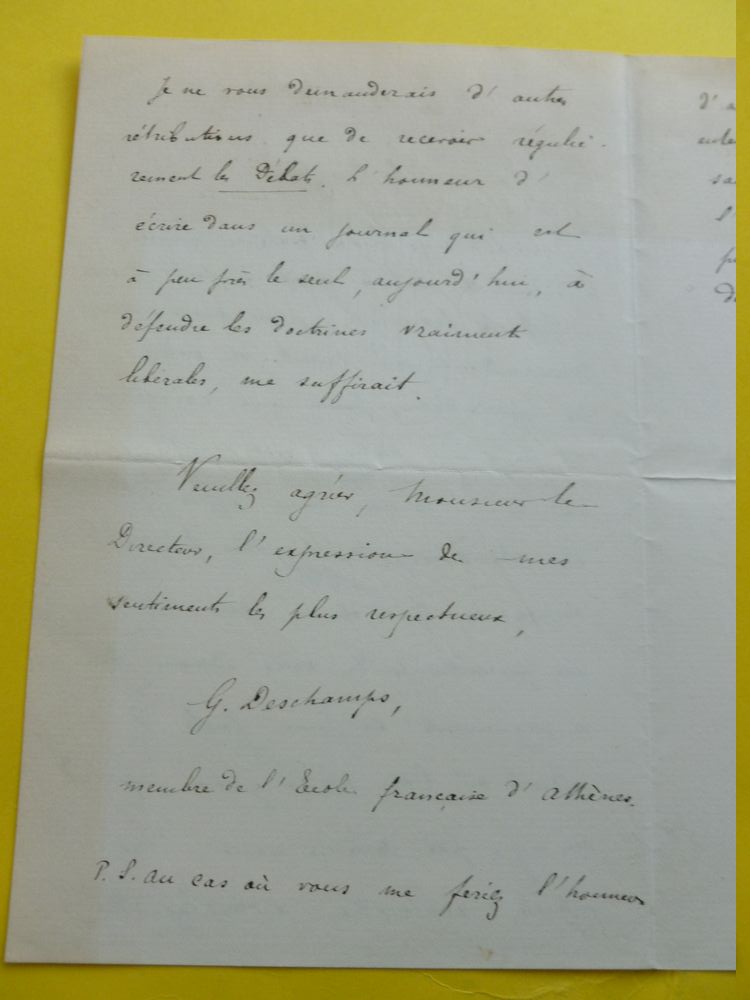 Je ne vous demanderais d' autres
rétributions que de recevoir réguliè-
rement les Débats. L' honneur d'
écrire dans un journal qui est
à peu près le seul, aujourd' hui, à
défendre les doctrines vraiment
libérales, me suffirait.
Veuillez agréer, Monsieur le
Directeur, l' expression de mes
sentiments les plus respectueux,
G. Deschamps,
membre de l' Ecole française d' Athènes.
P. S. au cas où vous me feriez l' honneur
d' a
sa
l'